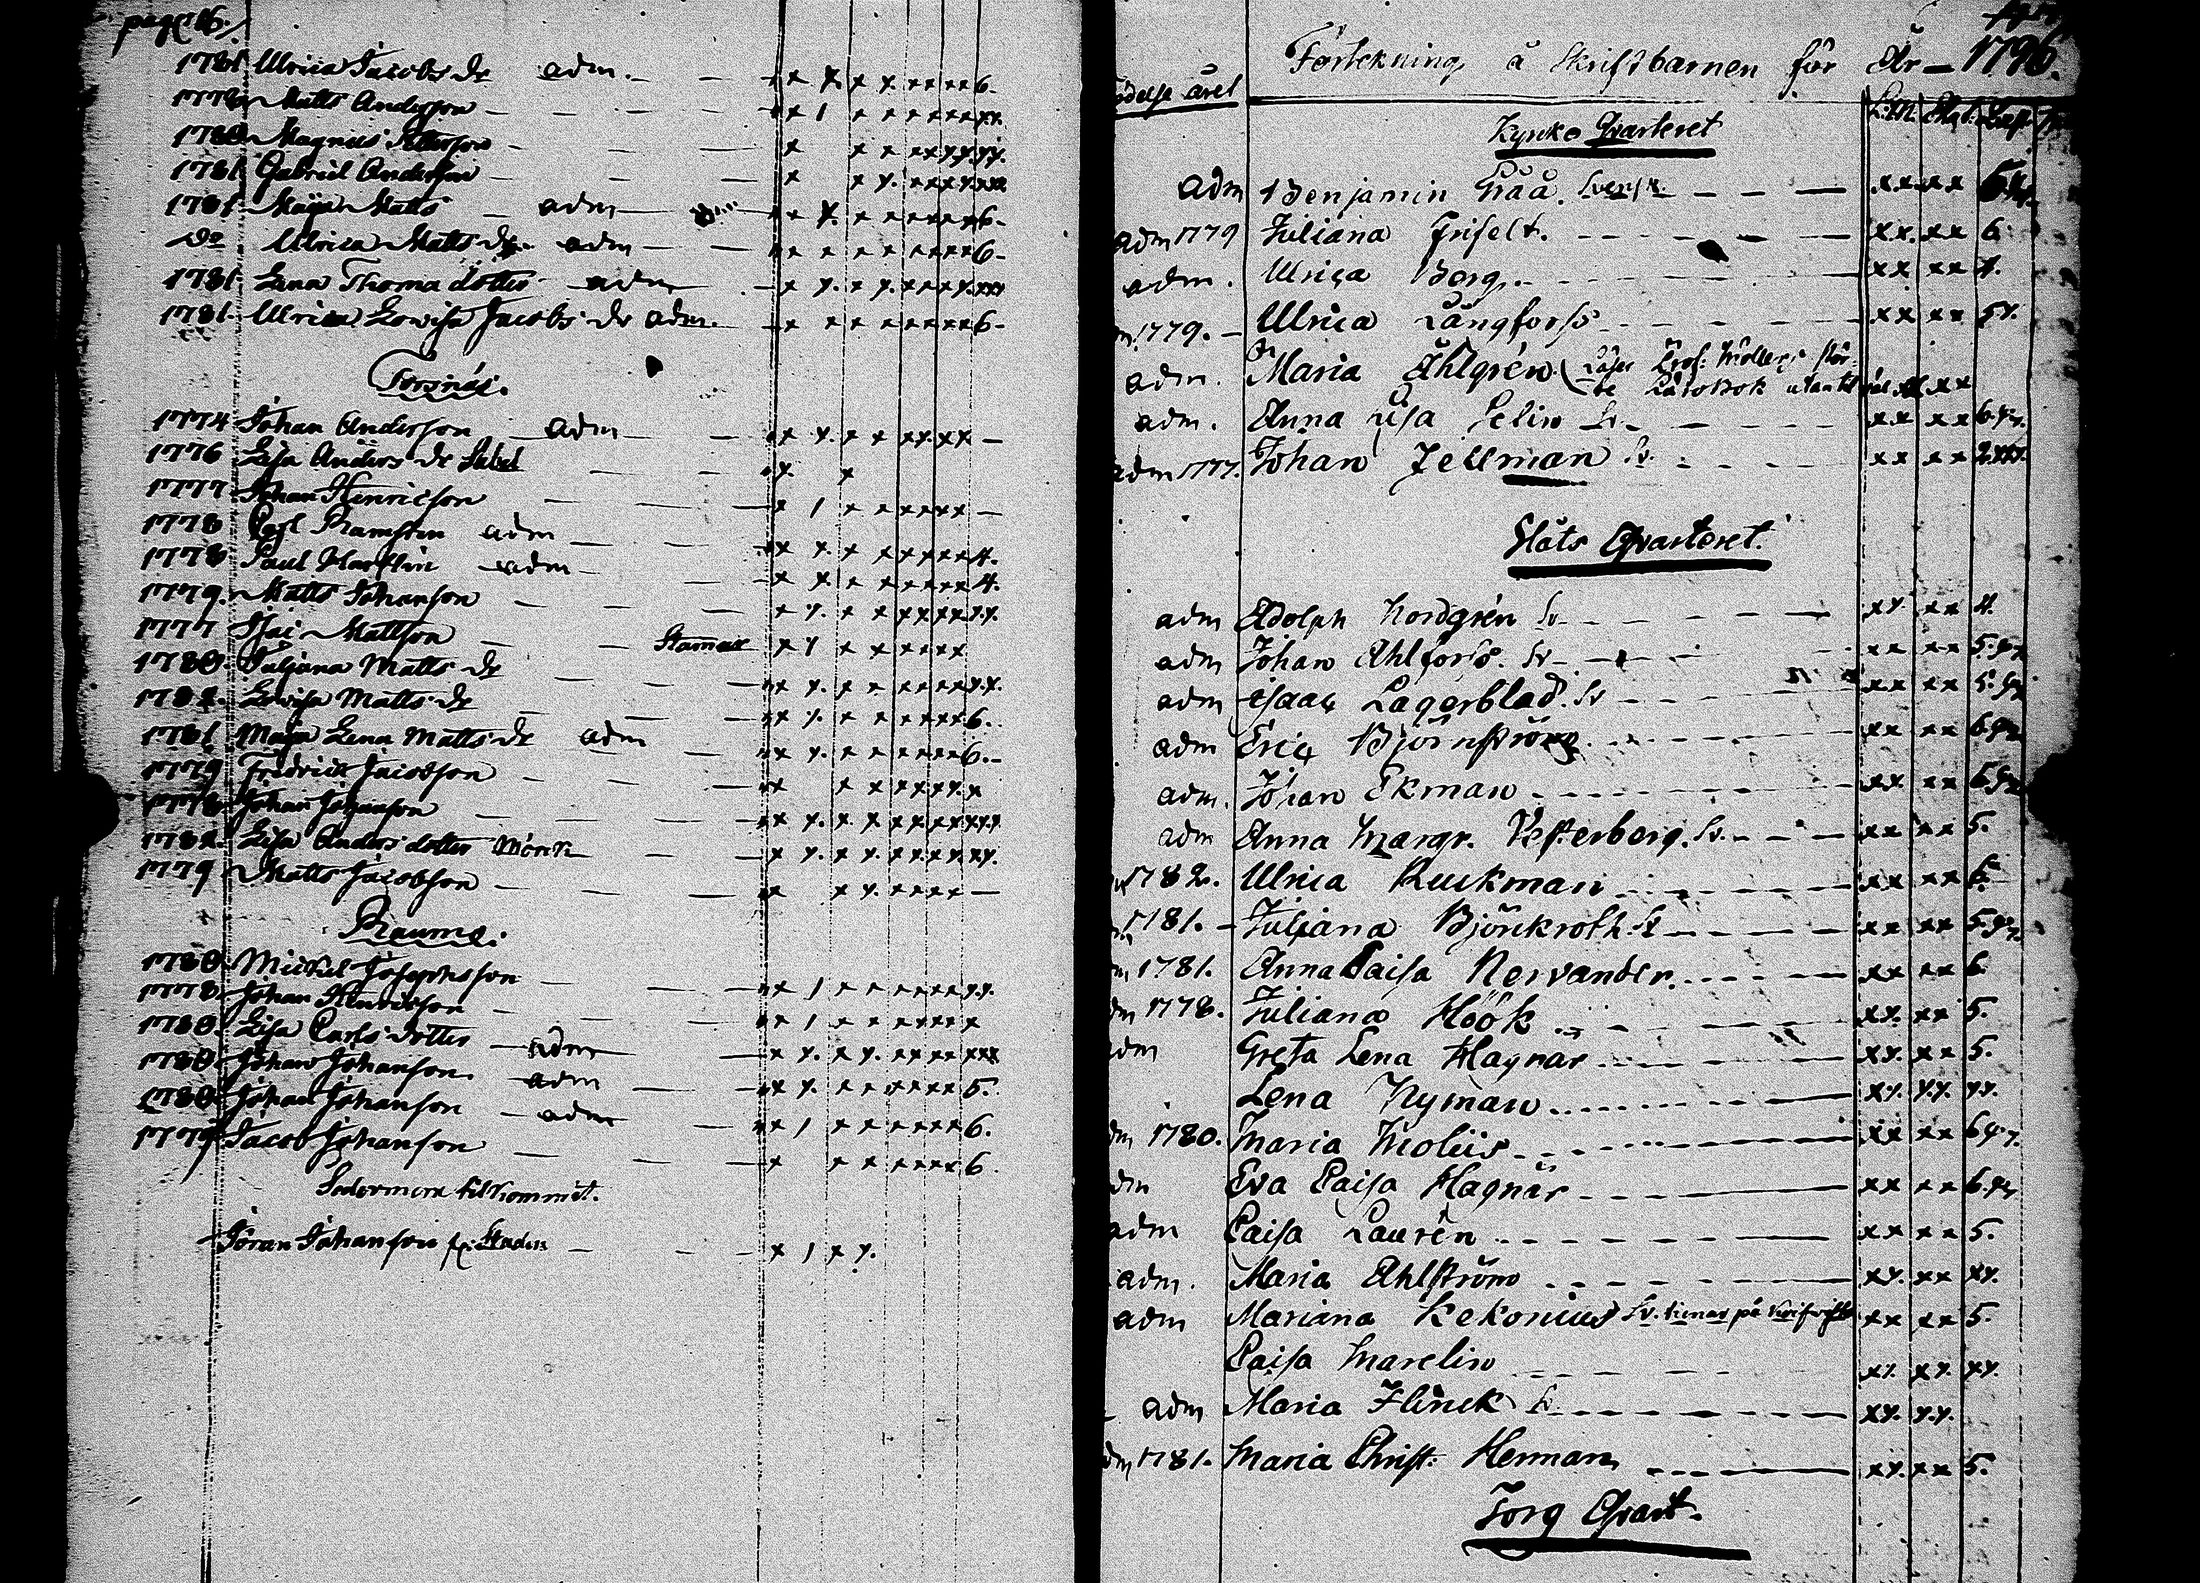 pag: 16.
1781 Ulrica Jacobs dr adm. — — xx x. x x xx xx 6.
1778 Matts Andersson — — — xx 1 x x xx xx xx.
1780 Magnus Pettersson — — — x x x xx x.x. x.x.
1781 Gabriel Anderson — — — x x x. xx x.x. xx
1781 Maija Matts — adm — — xx x. x x xx xx 6.
Do Ulrica Matts dr. adm — — xx x x x xx xx 6.
1781 Lena Thoma dotter — adm — x x. x x. xx x. xxx
1781. Ulrica Lovisa Jacobs dr adm. — xx x x xx xx 6.
Torsnäs.
1774 Johan Anderson — adm — — xx x. x x xx xx —
1776 Lisa Anders dr — — x x
1777 Johan Henricson — — — x 1 x x xx xx —
1778 Carl Ramström adm — — — xx x. x x xx xx 4.
1778 Paul Marttin — adm — — x x. x x xx xx 4.
1779. Matts Johanson — — — x x. x x xx xx x.x.
1777 Isac Mattson — — Stammar x 1 x x xx xx
1780. Juljana Matts dr — — — xx x. x x xx xx x.x.
1782. Lovisa Matts dr — — — xx x. x x xx xx 6.
1781 Maja Lena Matts dr adm — — xx x. x x xx xx 6.
1779 Fredrick Jacobson — — — xx x x xx x.x. x
1778 Johan Johanson — — — xx x. x. x xx xx xx.
1782. Lisa Anders dotter Mörck — — x x. x x. xx x.x. xx.
1779 Matts Jacobson — — — xx x x. xx xx —
Raumo.
1780 Michel Josephsson — — — xx 1 x x xx xx x.x.
1778. Johan Henricson — — — xx 1 x x xx xx x
1780. Lisa Carls dotter — adm — — x x. x x. xx xx xxx
1780. Johan Johanson. adm — — xx x. x x xx xx 5.
1780. Johan Johanson — adm — xx 1 x x xx xx 6.
1779. Jacob Johanson — — — x x x xx xx 6.
Sedermera tilkommit.
Jöran Johanson fr. Staden — — x 1 x x.
Förtekning å Skriftbarnen för År — 1796.
Kyrko Qvarteret
adm Benjamin Håå. — — — xx xx
adm 1779 Juliana Friselt. — — — xx. xx 6
adm. Ulrica Berg. — — — xx xx 4.
1779. — Ulrica Långforss — — — xx xx 5x.
adm. Maria Åhlgrén (Läser Prof: Möllers stör-
re Läro Bok utan til xx
adm. Anna Lisa Selin Sv. — — — xx xx
adm 1777. Johan Zellman Sv. — — — xx xx
Slåts Qvarteret.
adm Adolph Nordgrén Sv — — — xx. xx 4.
adm Johan Ahlforss. Sv — — — xx xx
adm Isaac Lagerblad. Sv — — — xx xx
adm Eric Björnström — — — xx xx
adm. Johan Ekman — — — xx. xx
adm Anna Margr. Vesterberg. Sv. — — — xx xx 5.
1782. Ulrica Ruckman — — — xx xx 6.
1781. — Juljana Björkroth. Sv — — — xx xx
1781. Anna Caisa Nervander. — — — xx xx 6.
1778. Juliana Höök — — — xx. xx 5.
adm Greta Lena Hagnär — — — xx. xx 5.
Lena Nyman — — — xx. x.x. xx.
1780. Maria Molliis — — — xx xx
adm Eva Caisa Hagnär — — — xx xx
adm Caisa Laurén — — — xx xx 5.
adm. Maria Ahlström — — — xx. xx xx.
adm Mariana Kekonius Sv. tienar på xx xx 5.
Caisa Marelin — — — xx. xx. xx.
adm Maria Flinck Sv. — — — xx. x.x.
1781. Maria Christ: Herman — — — xx. xx 5.
Torg Qvart.